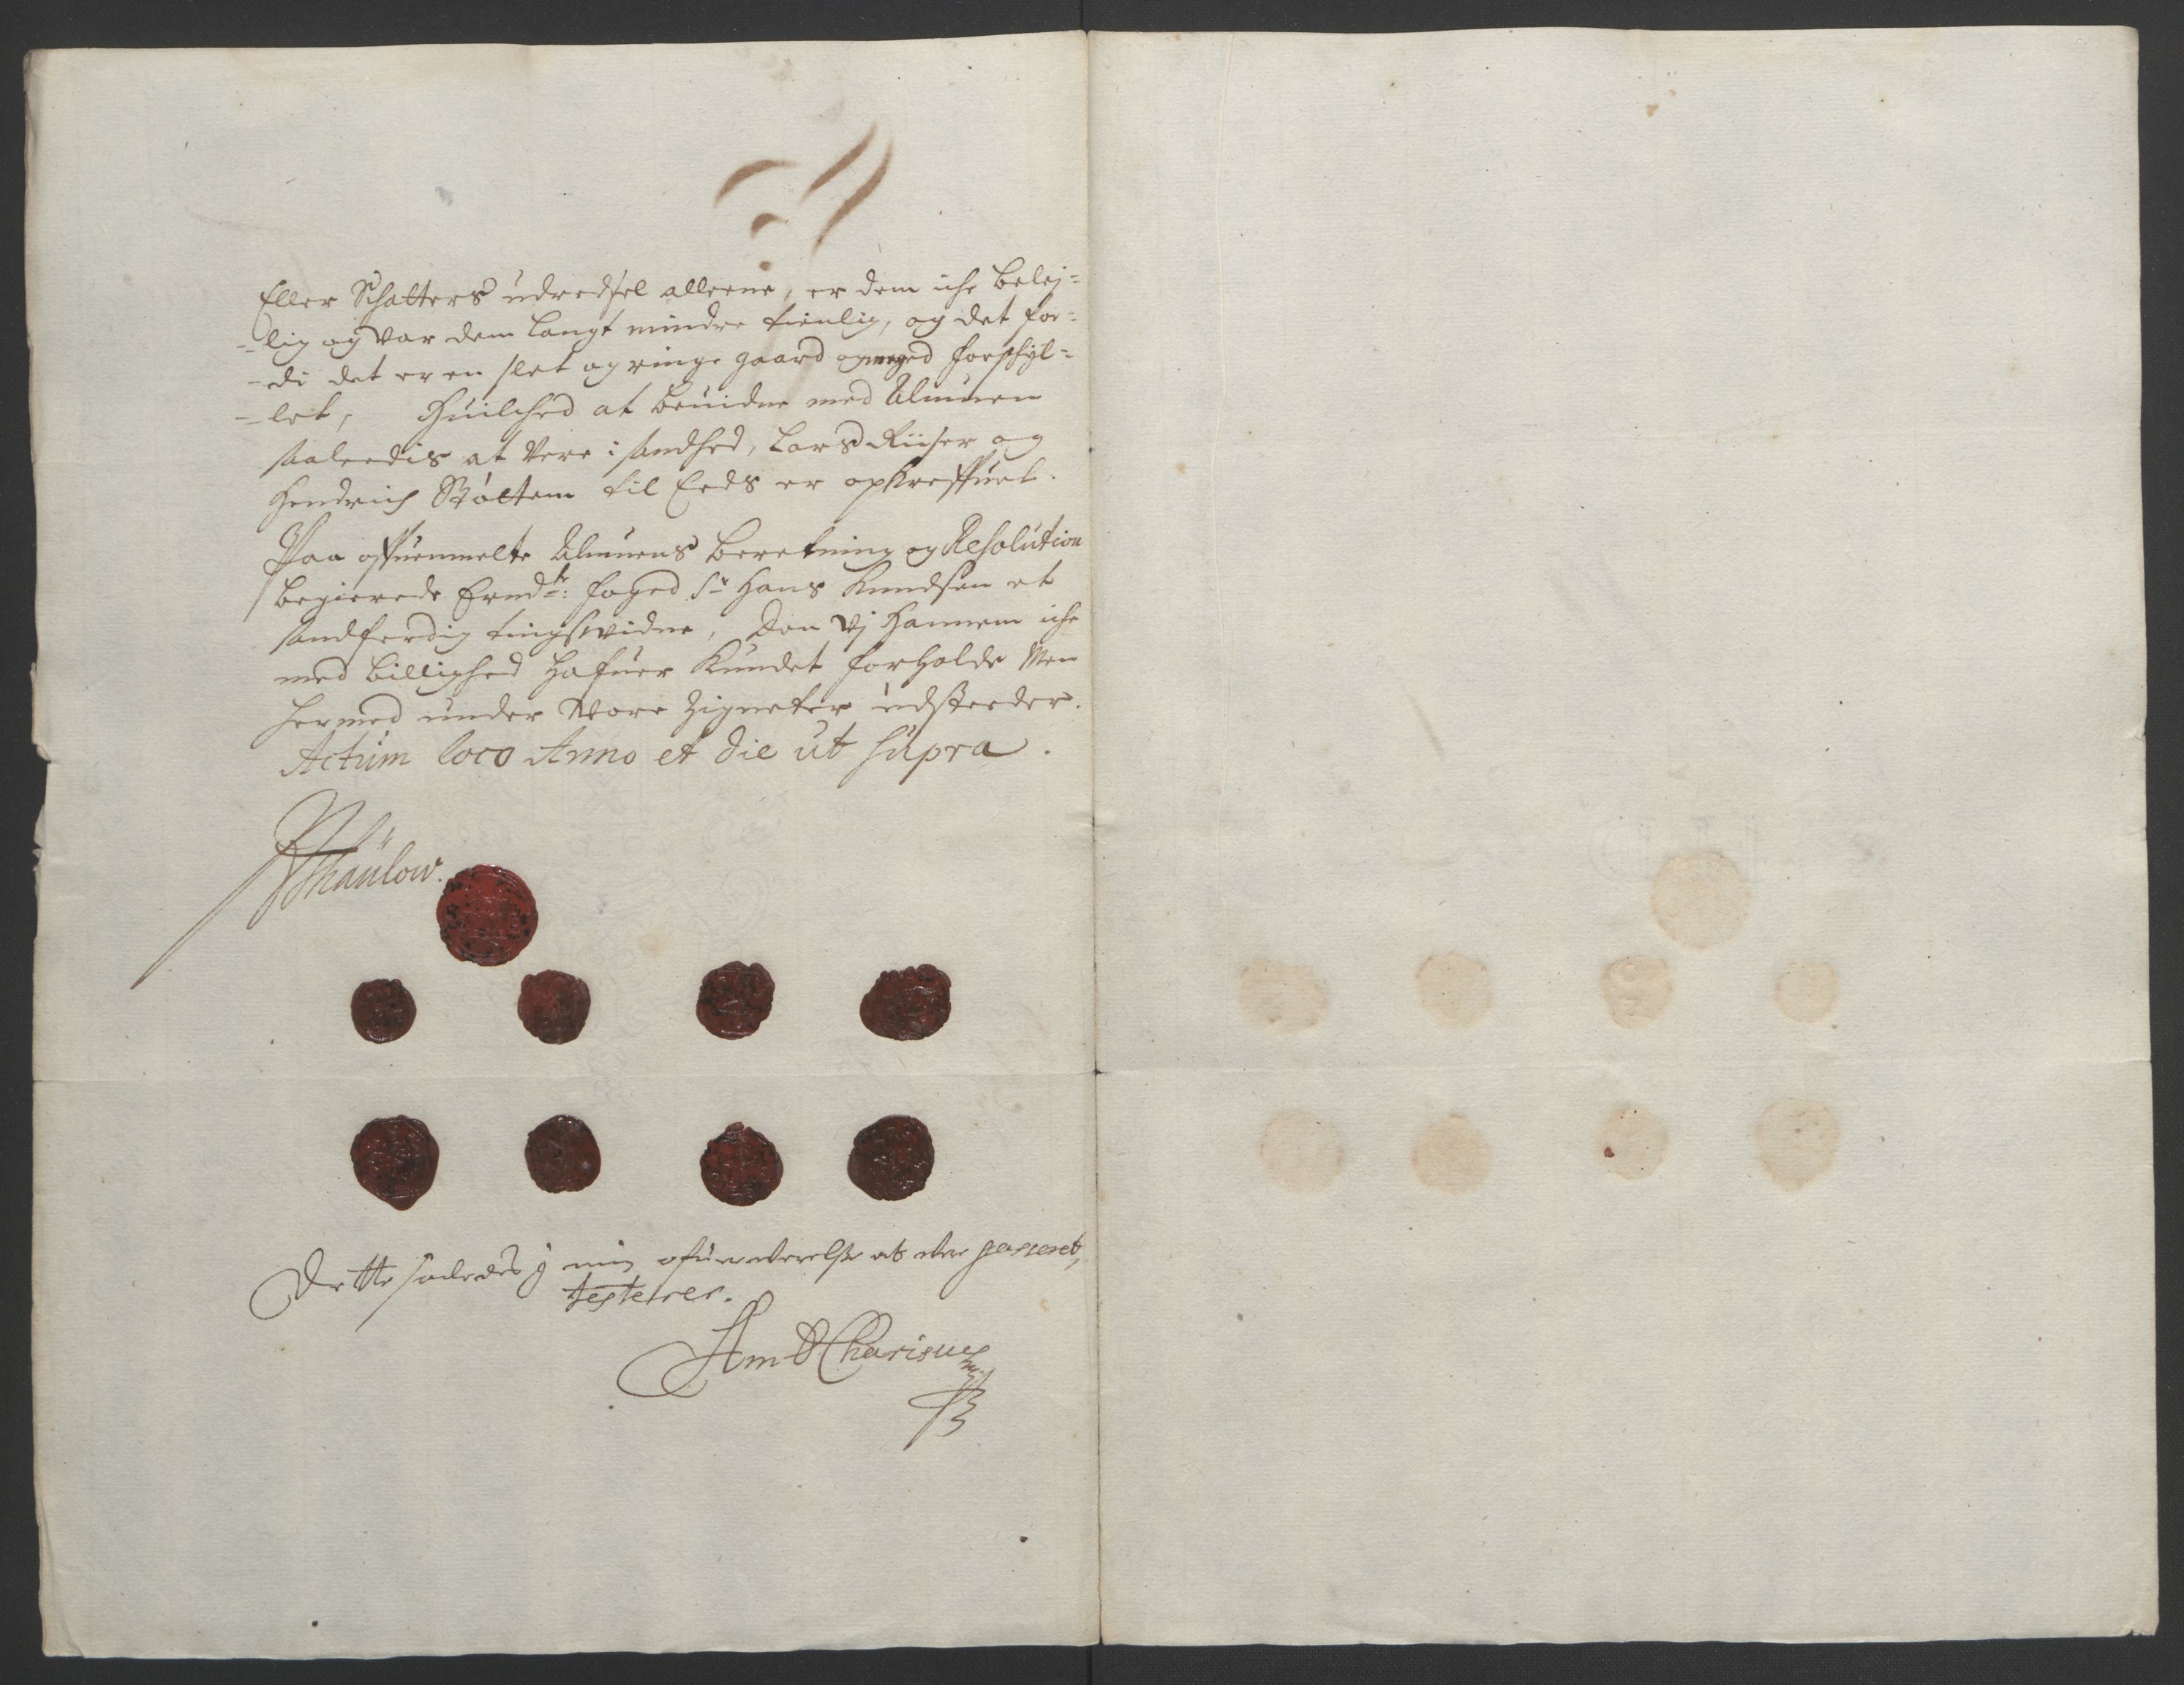 Eller Schatters udredsel alleene, er dem iche beley=
=lig og var dem langt mindre tienlig, og det for=
=di det er en slet og ringe gaard og meged forskyl=
=let, Huilched at beuidne med Almuen
saaleedis at vere i sandhed, Lars Riiser og
Hendrich Stoltem til Eeds er opkreffuet.
Paa offuenmelte Almuens beretning og Resolution
begierede Ermdte: foged Sr Hans Knudsen et
sandferdig tingsvidne, Den vj Hannem iche
med billighed hafuer Kundet forholde Men
hermed under Vore Zigneter udsteeder.
Actum loco Anno et die ut supra.
Thaulow.
Dette saaledes j min ofuerverelse at vere passeret,
testerer.
Am D Charisius